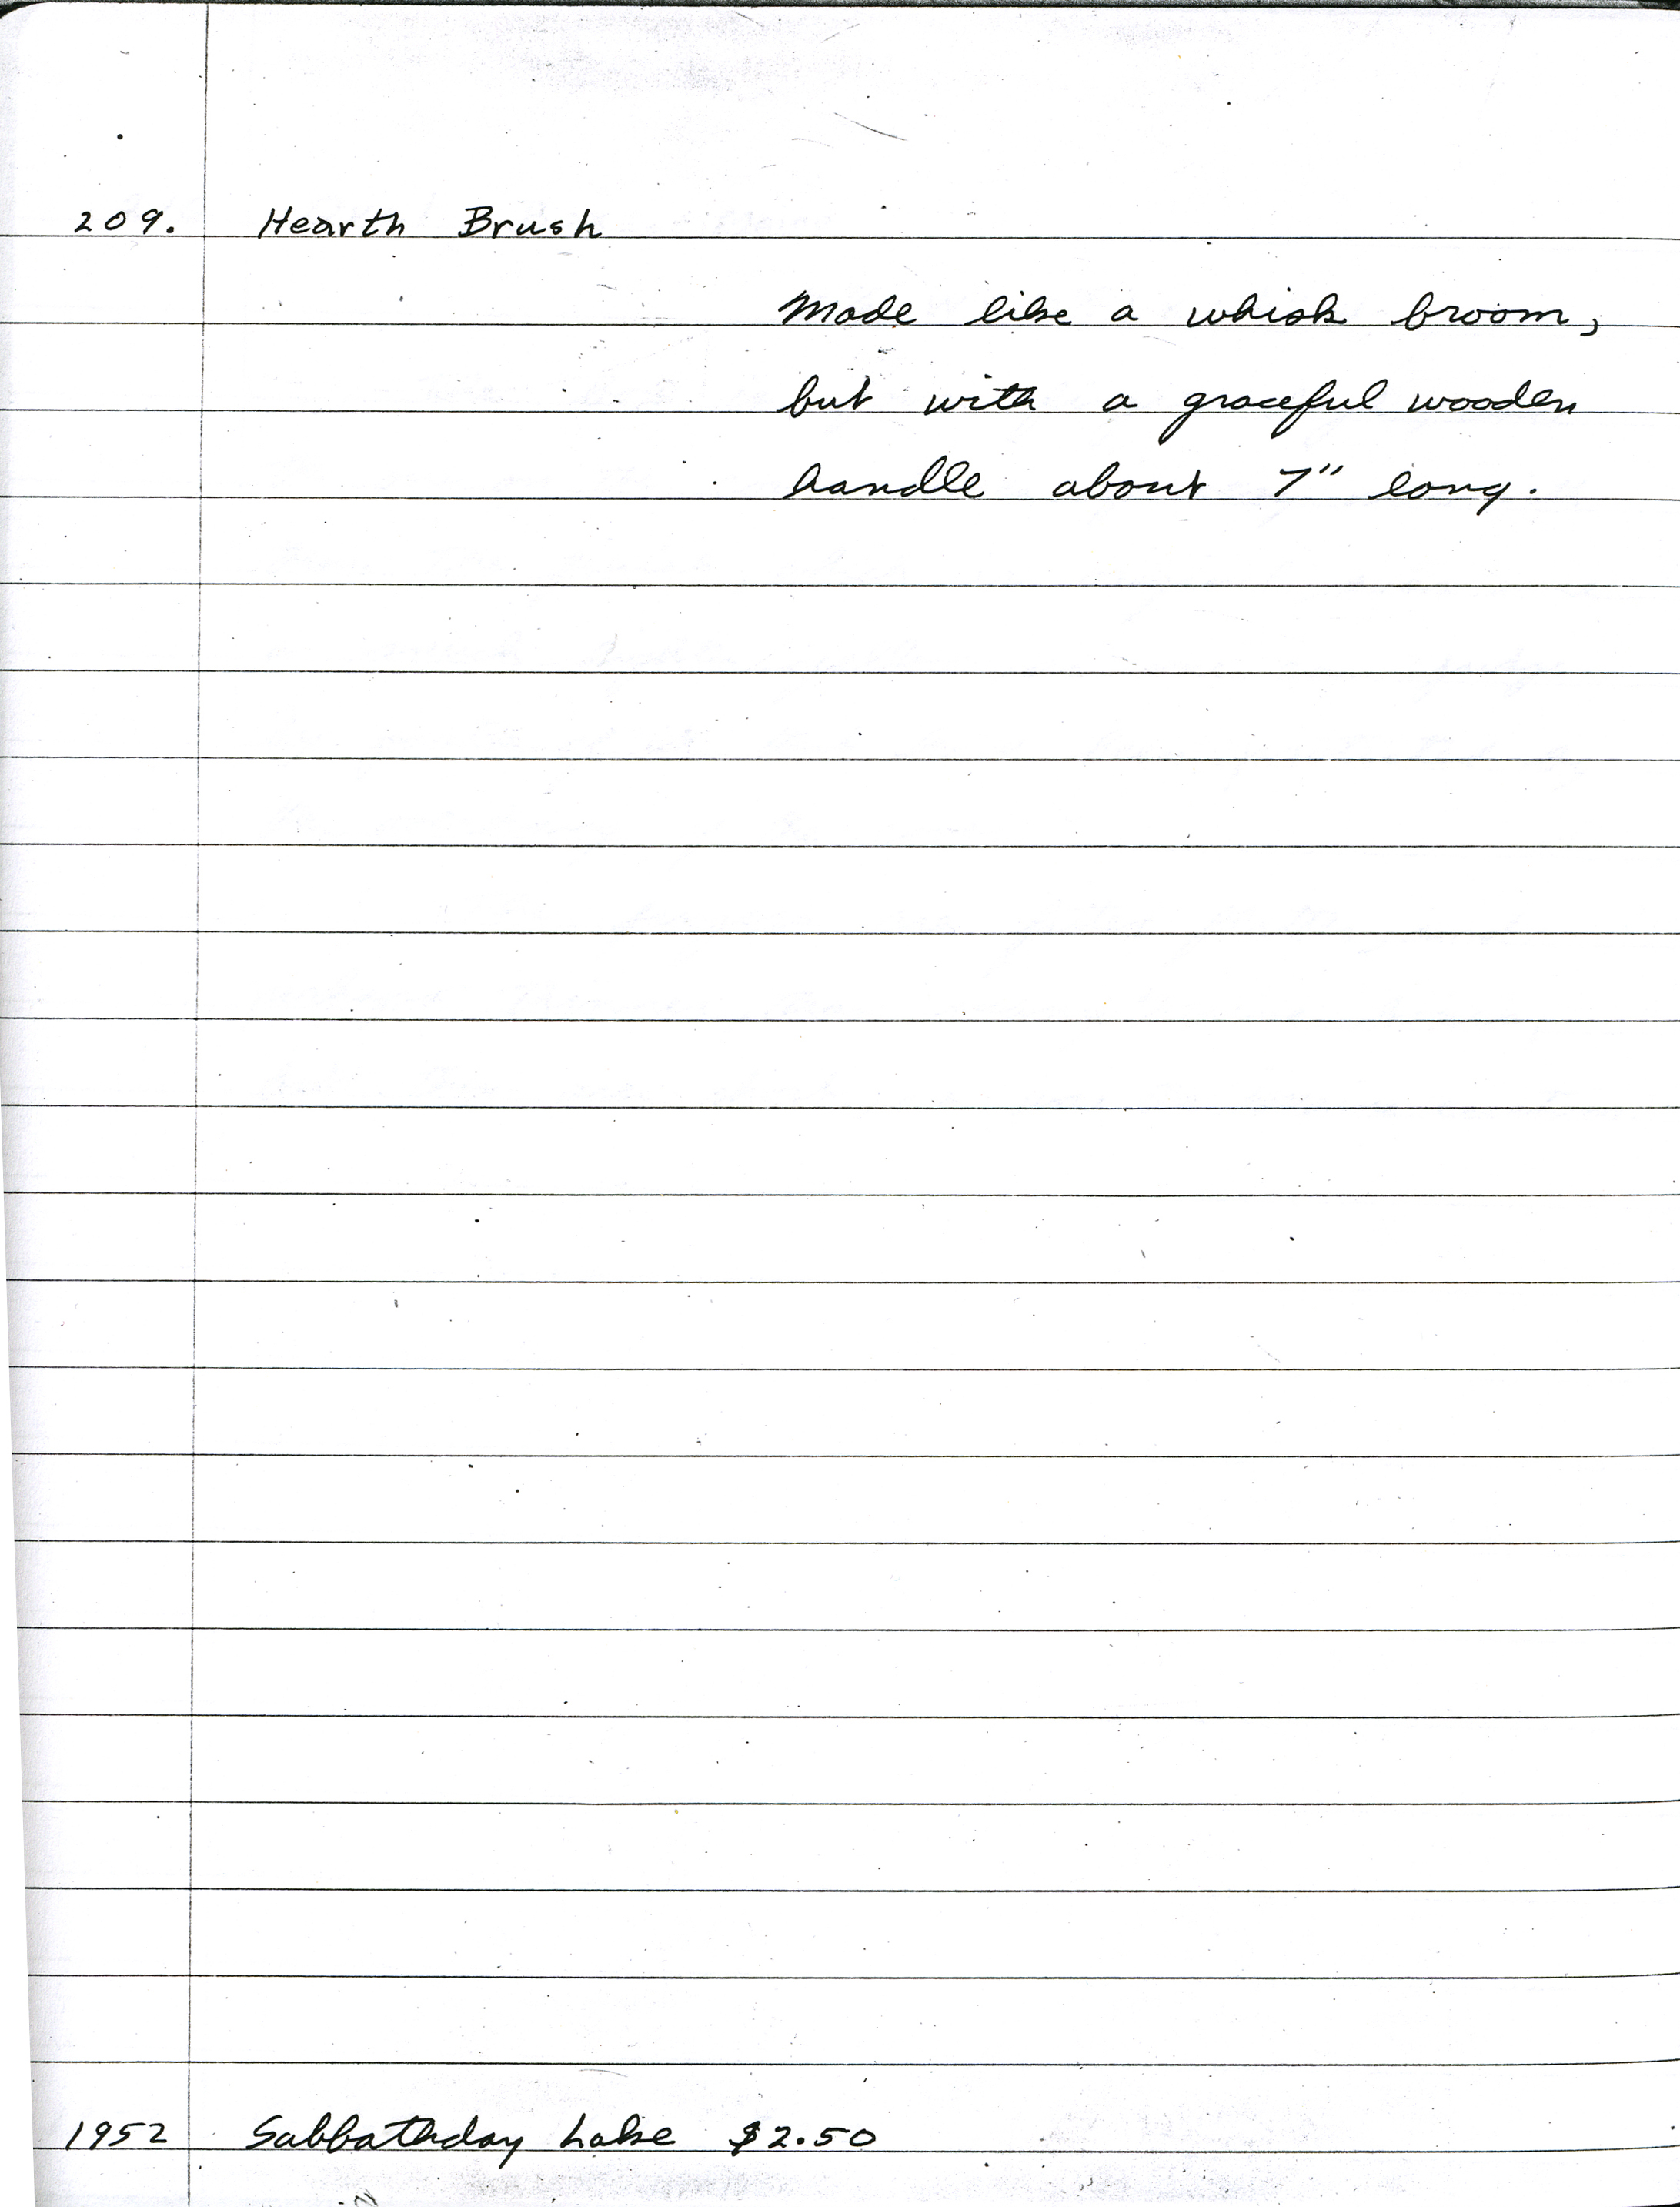 209. Hearth Brush
Made like a whisk broom,
but with a graceful wooden
handle about 7" long.
1952 Sabbathday Lake $2.50